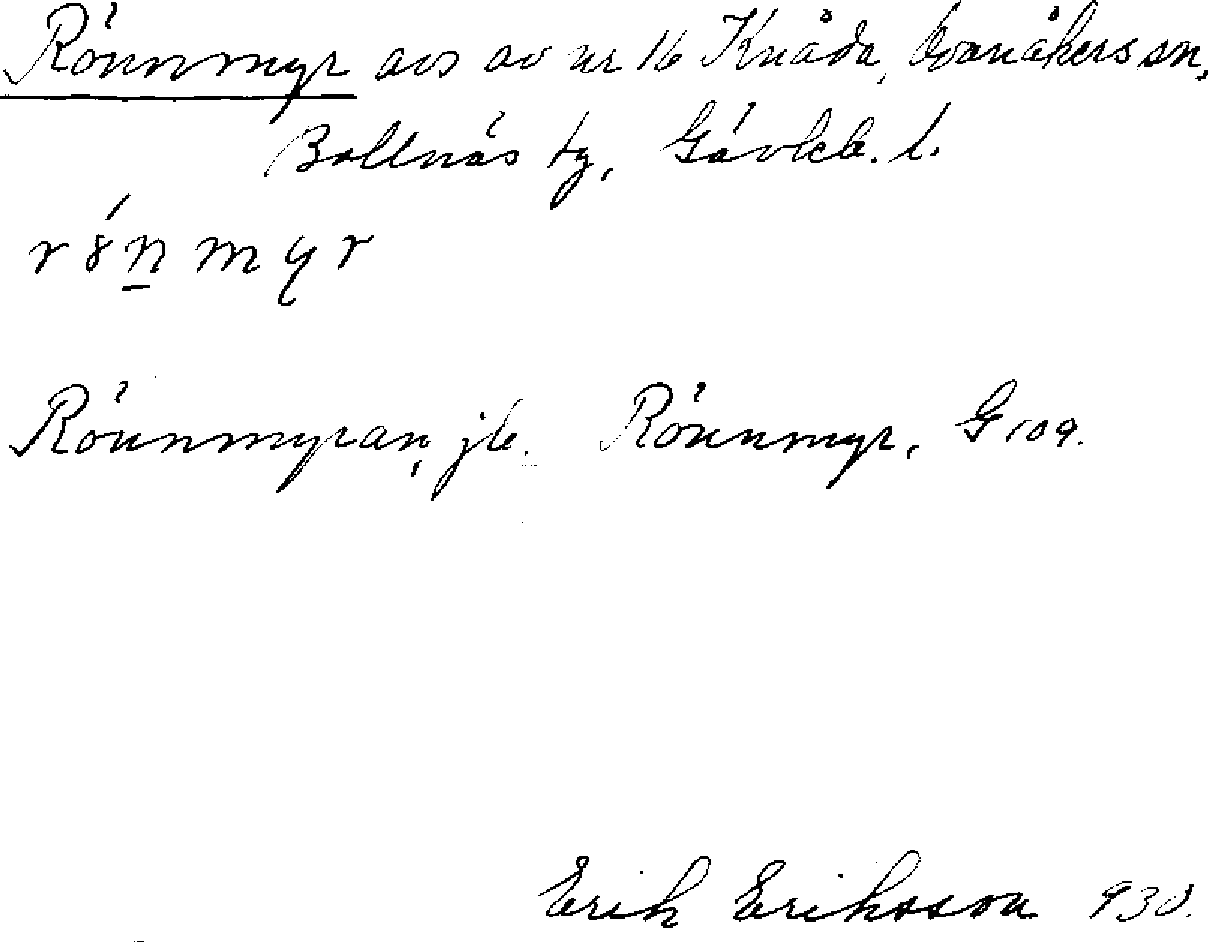 Rönnmyr avs av nr 16 Knåda, Ovanåkers sn,
Bollnäs tg, Gävleb. l.
r ö́ n m y r
Rönnmyran, jb. Rönnmyr, G 109.
Erik Eriksson 930.